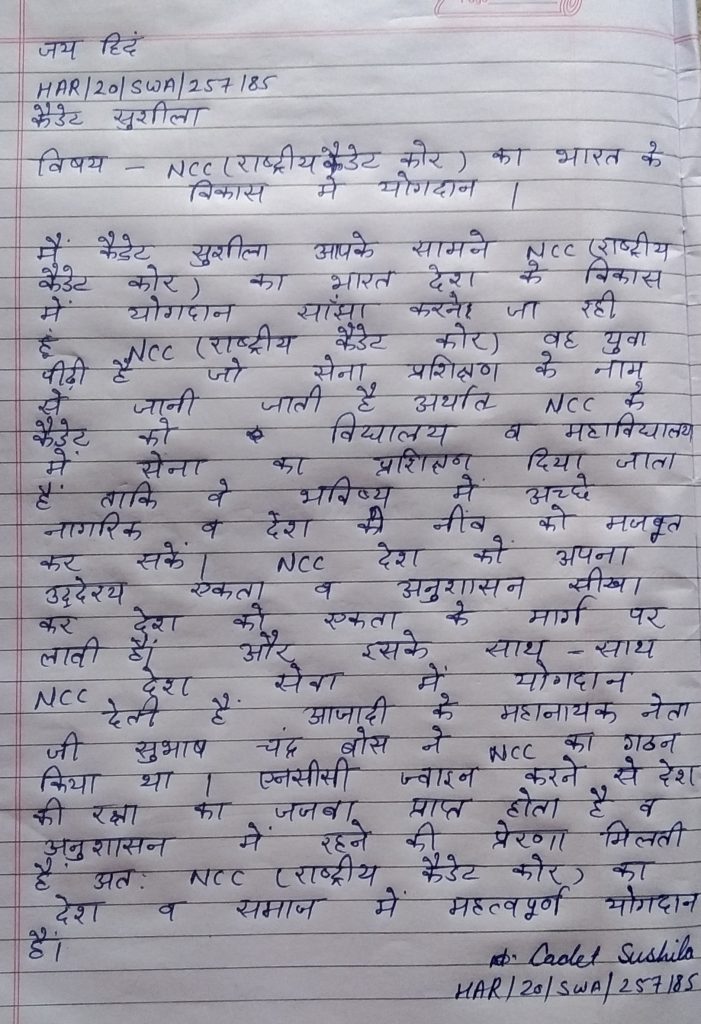 जय हिदं
HAR/20/SWA/257185
कैडेट सुशीला
विषय - NCC (राष्ट्रीय कैडेट कोर) का भारत के
विकास में योगदान |
मैं कैडेट सुशीला आपके सामने NCC (राष्ट्रीय
कैडेट कोर) का भारत देश के विकास
में योगदान सांझा करने जा रही
हूं NCC (राष्ट्रीय कैडेट कोर) वह युवा
पीढ़ी है जो सेना प्रशिक्षण के नाम
से जानी जाती है अर्थात NCC के
कैडेट को विद्यालय व महाविद्यालय
में सेना का प्रशिक्षण दिया जाता
हैं ताकि वे भविष्य में अच्छे
नागरिक व देश की नींव को मजबूत
कर सकें | NCC देश को अपना
उद्देश्य एकता व अनुशासन सीखा
कर देश को एकता के मार्ग पर
लाती हैं और इसके साथ - साथ
NCC देश सेवा में योगदान
देती हैं आजादी के महानायक नेता
जी सुभाष चंद्र बोस ने NCC का गठन
किया था | एनसीसी ज्वाइन करने से देश
की रक्षा का जजबा प्राप्त होता है व
अनुशासन में रहने की प्रेरणा मिलती
हैं अतः NCC (राष्ट्रीय कैडेट कोर) का
देश व समाज में महत्वपूर्ण योगदान
हैं।
Cadet Sushila
HAR/20/SWA/257185